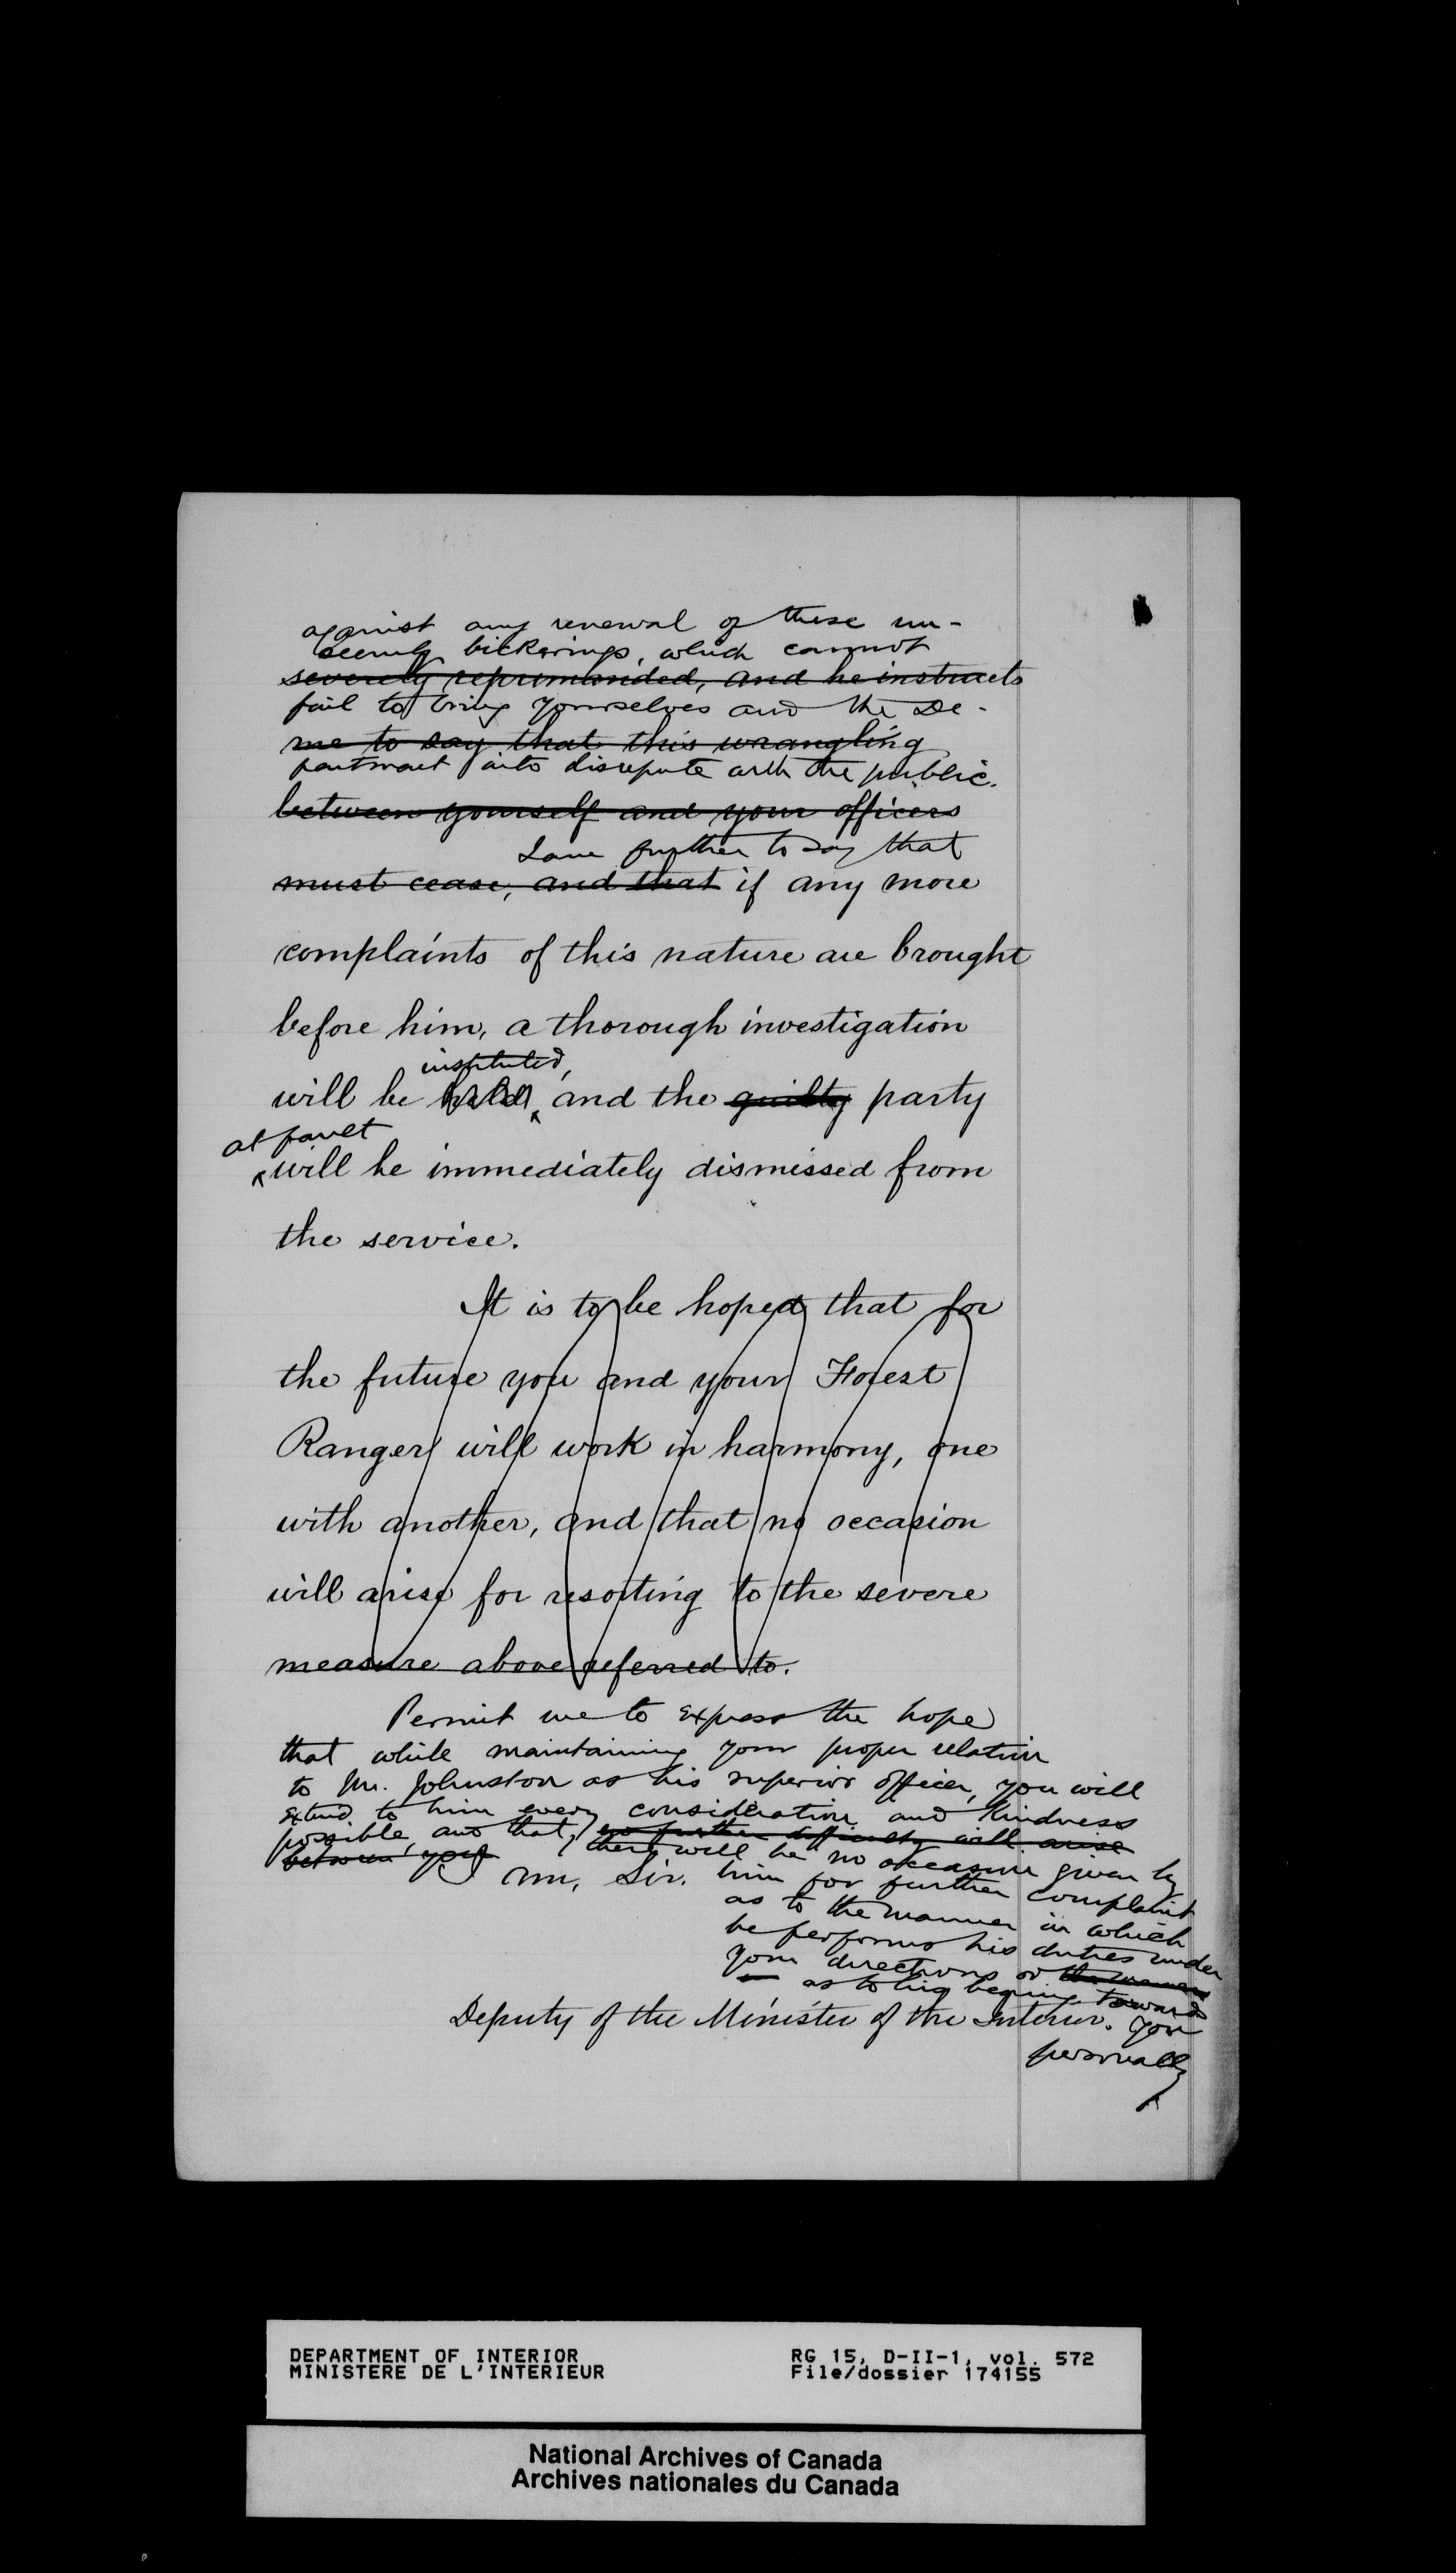 against any renewal of these un-
seemly bickerings, which cannot
severely reprimanded, and he instructs
fail to bring yourselves and the De-
me to say that this wrangling
partment into disrepute with the public.
between yourself and your officers
I am further to say that
must cease, and that if any more
complaints of this nature are brought
before him, a thorough investigation
instituted,
will be held, and the guilty party
at fault
will be immediately dismissed from
the service.
It is to be hoped that for
the future you and your Forest
Ranger will work in harmony, one
with another, and that no occasion
will arise for resorting to the severe
measure above referred to.
Permit me to express the hope
that while maintaining your proper relation
to Mr. Johnston as his superior officer, you will
extend to him every consideration and kindness
possible, and that, no further difficulty will arise
between you there will be no occasion given by
I am, Sir. him for further complaint
as to the manner in which
he performs his duties under
your directions or the manner
as to his bearing toward
Deputy of the Minister of the Interior. you
personally
DEPARTMENT OF INTERIOR
MINISTERE DE L'INTERIEUR
RG 15, D-II-1, vol. 572
File/dossier 174155
National Archives of Canada
Archives nationales du Canada